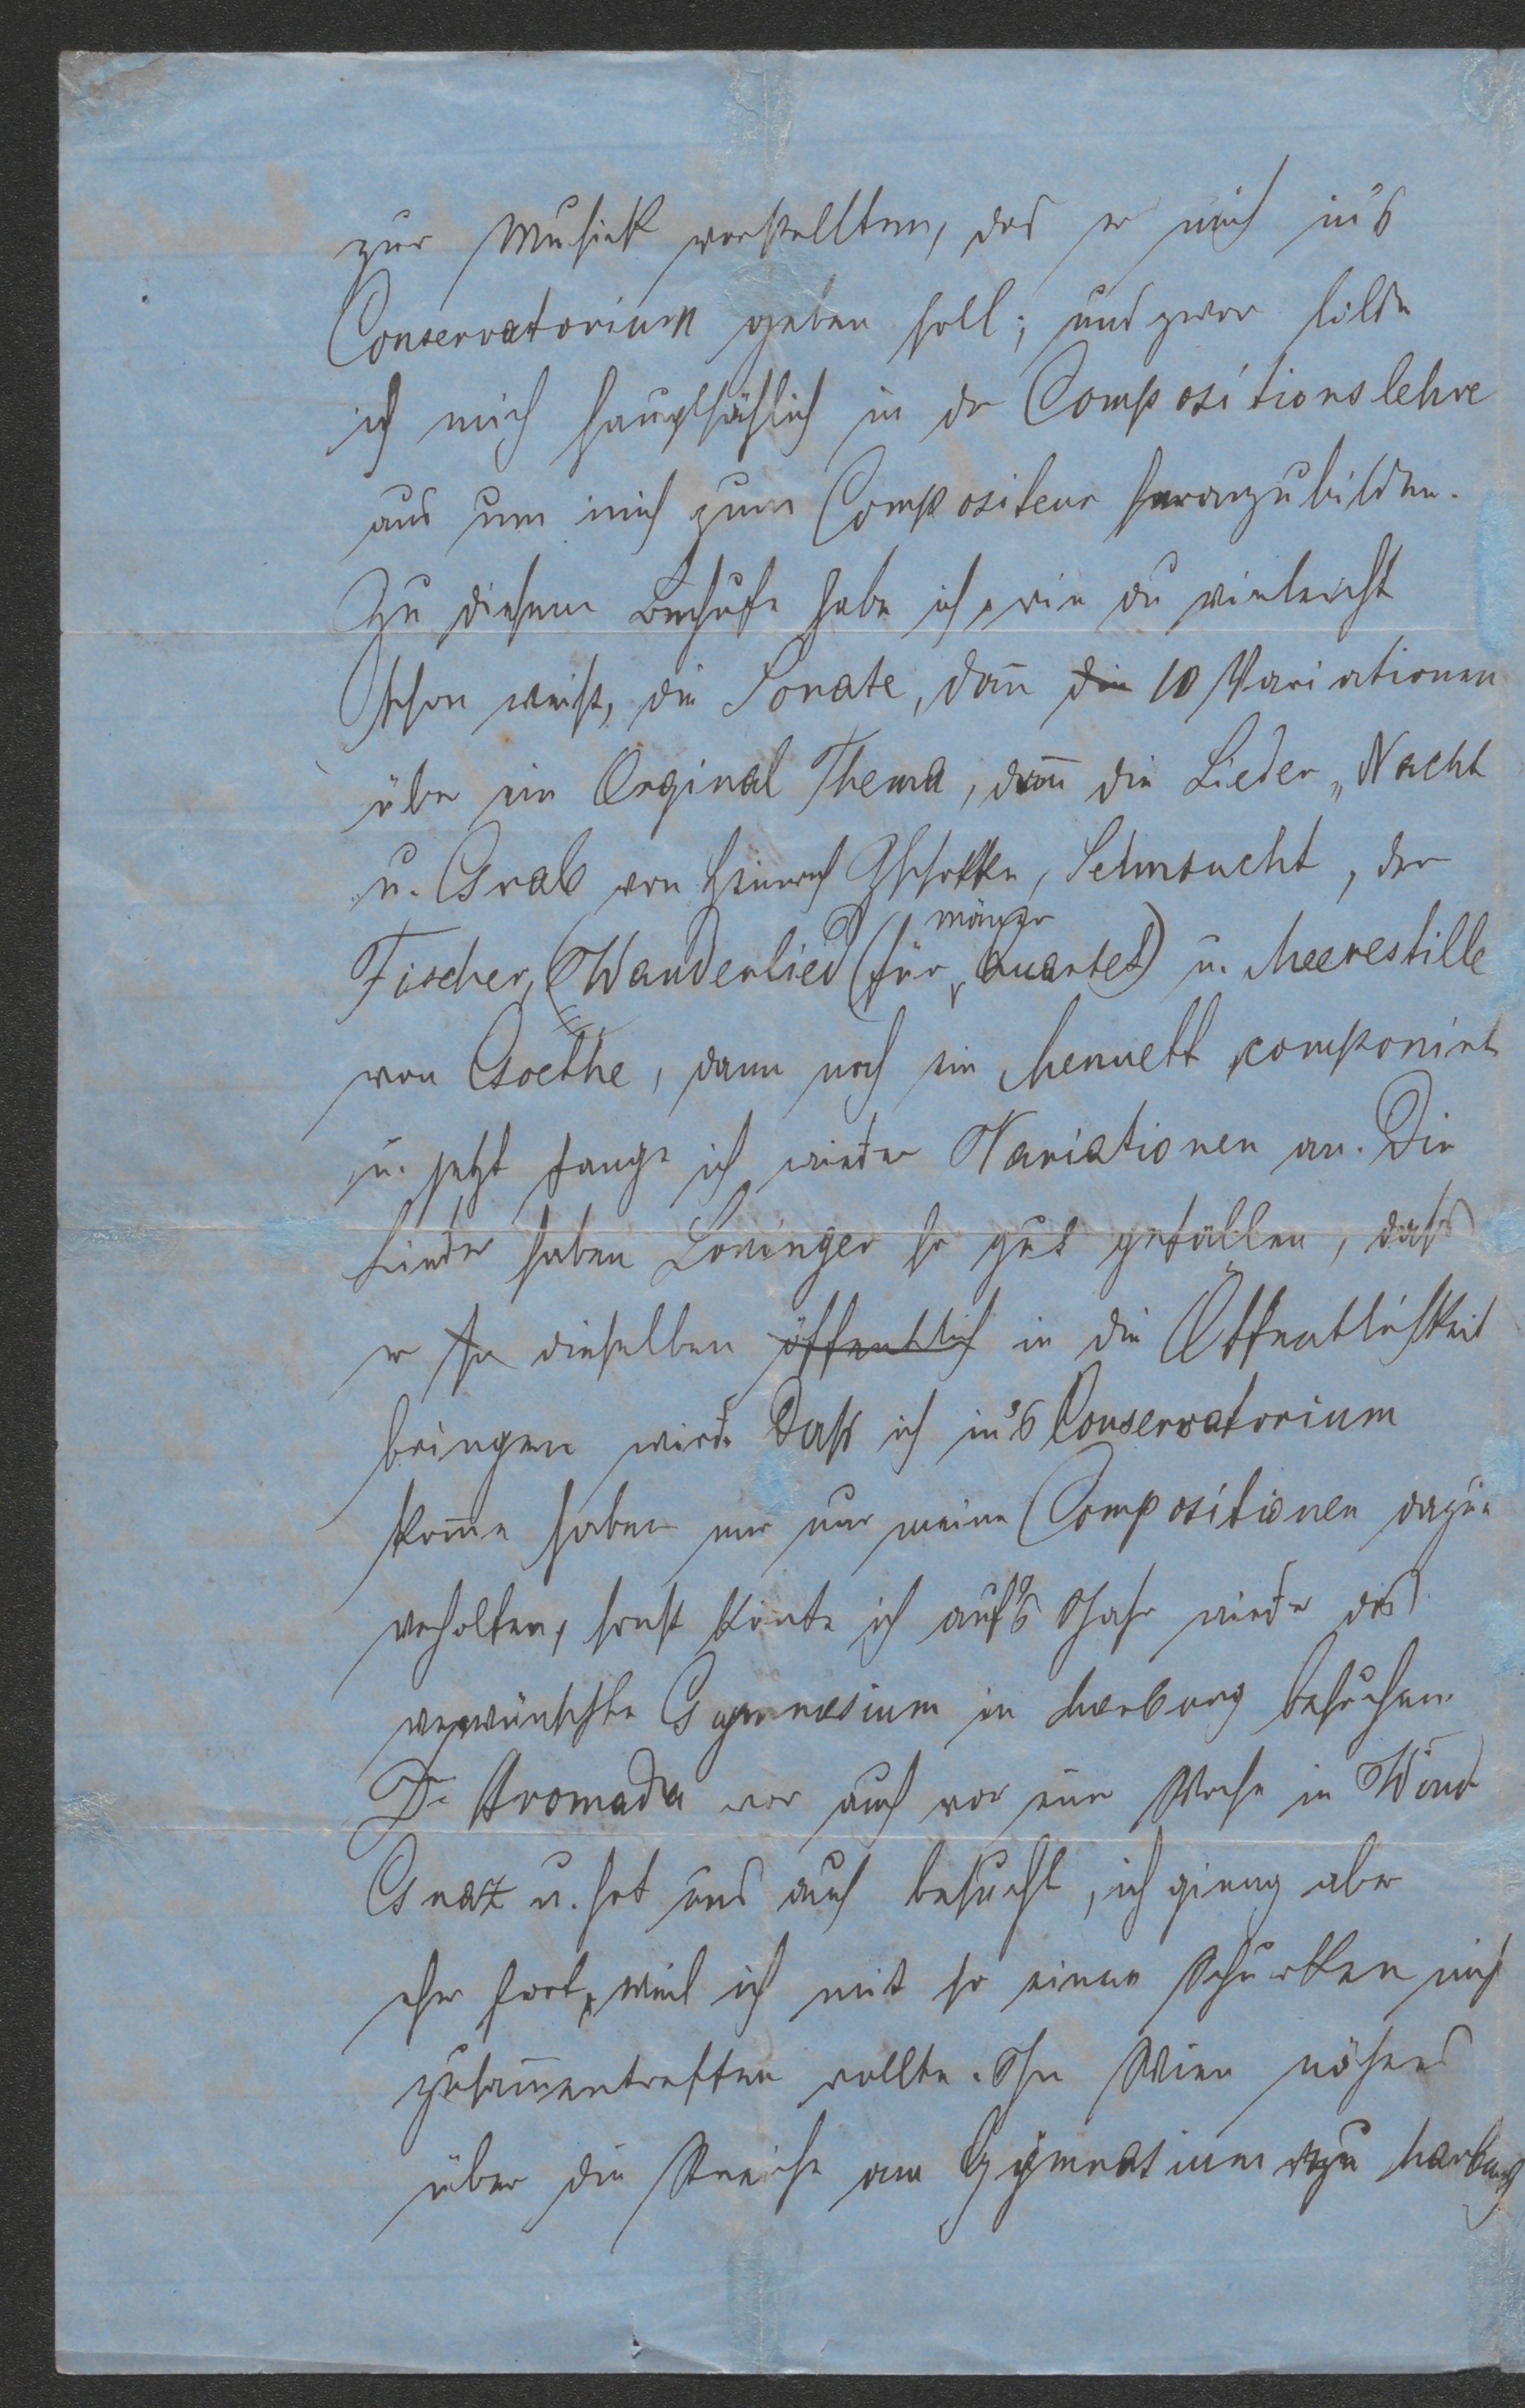 zur Musick vorstellten, das er mich in's
Conservatorium geben soll; und zwar bilde
ich mich hauptsächlich in der Compositionslehre
aus um mich zum Compositeur heranzubilden.
Zu diesem Behufe habe ich, wie du vieleicht
schon weißt, die Sonate, dan̄ die 10 Variationen
über ein Orginal Thema, dan̄ die Lieder „Nacht
u. Grab von Heinrich Zschokke, Sehnsucht, der
Fischer, Wanderlied (für männer Quartet) u. Meerestille
von Goethe, dann noch ein Menuett componirt
u. jetzt fange ich wieder Variationen an. Die
Lieder haben Loninger so gut gefallen, daß
er dieselben öffentlich in die Öffentlichkeit
bringen wird. Daß ich in's Conservatorium
kom̄e haben mir nur meine Compositionen dazu
verholfen, sonst könte ich auf's Jahr wieder das
verwünschte Gymnasium in Marburg besuchen.
Dr Hromada war auch vor einer Woche in Wind
Graz u. hat uns auch besucht, ich gieng aber
eher fort, weil ich mit so einem Schurken nicht
zusam̄entreffen wollte. In Wien näheres
über die Streiche am Gymnasium zu Marburg